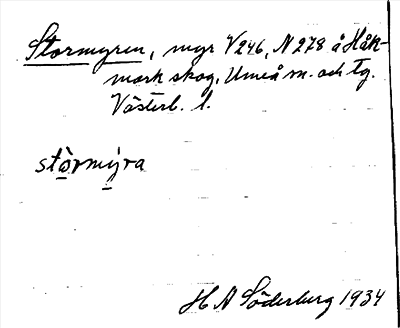 Stormyren, myr V246, N278 å Håk-
mark skog, Umeå sn. och tg.
Västerb. l.
stòrmýra
H A Söderburg 1934